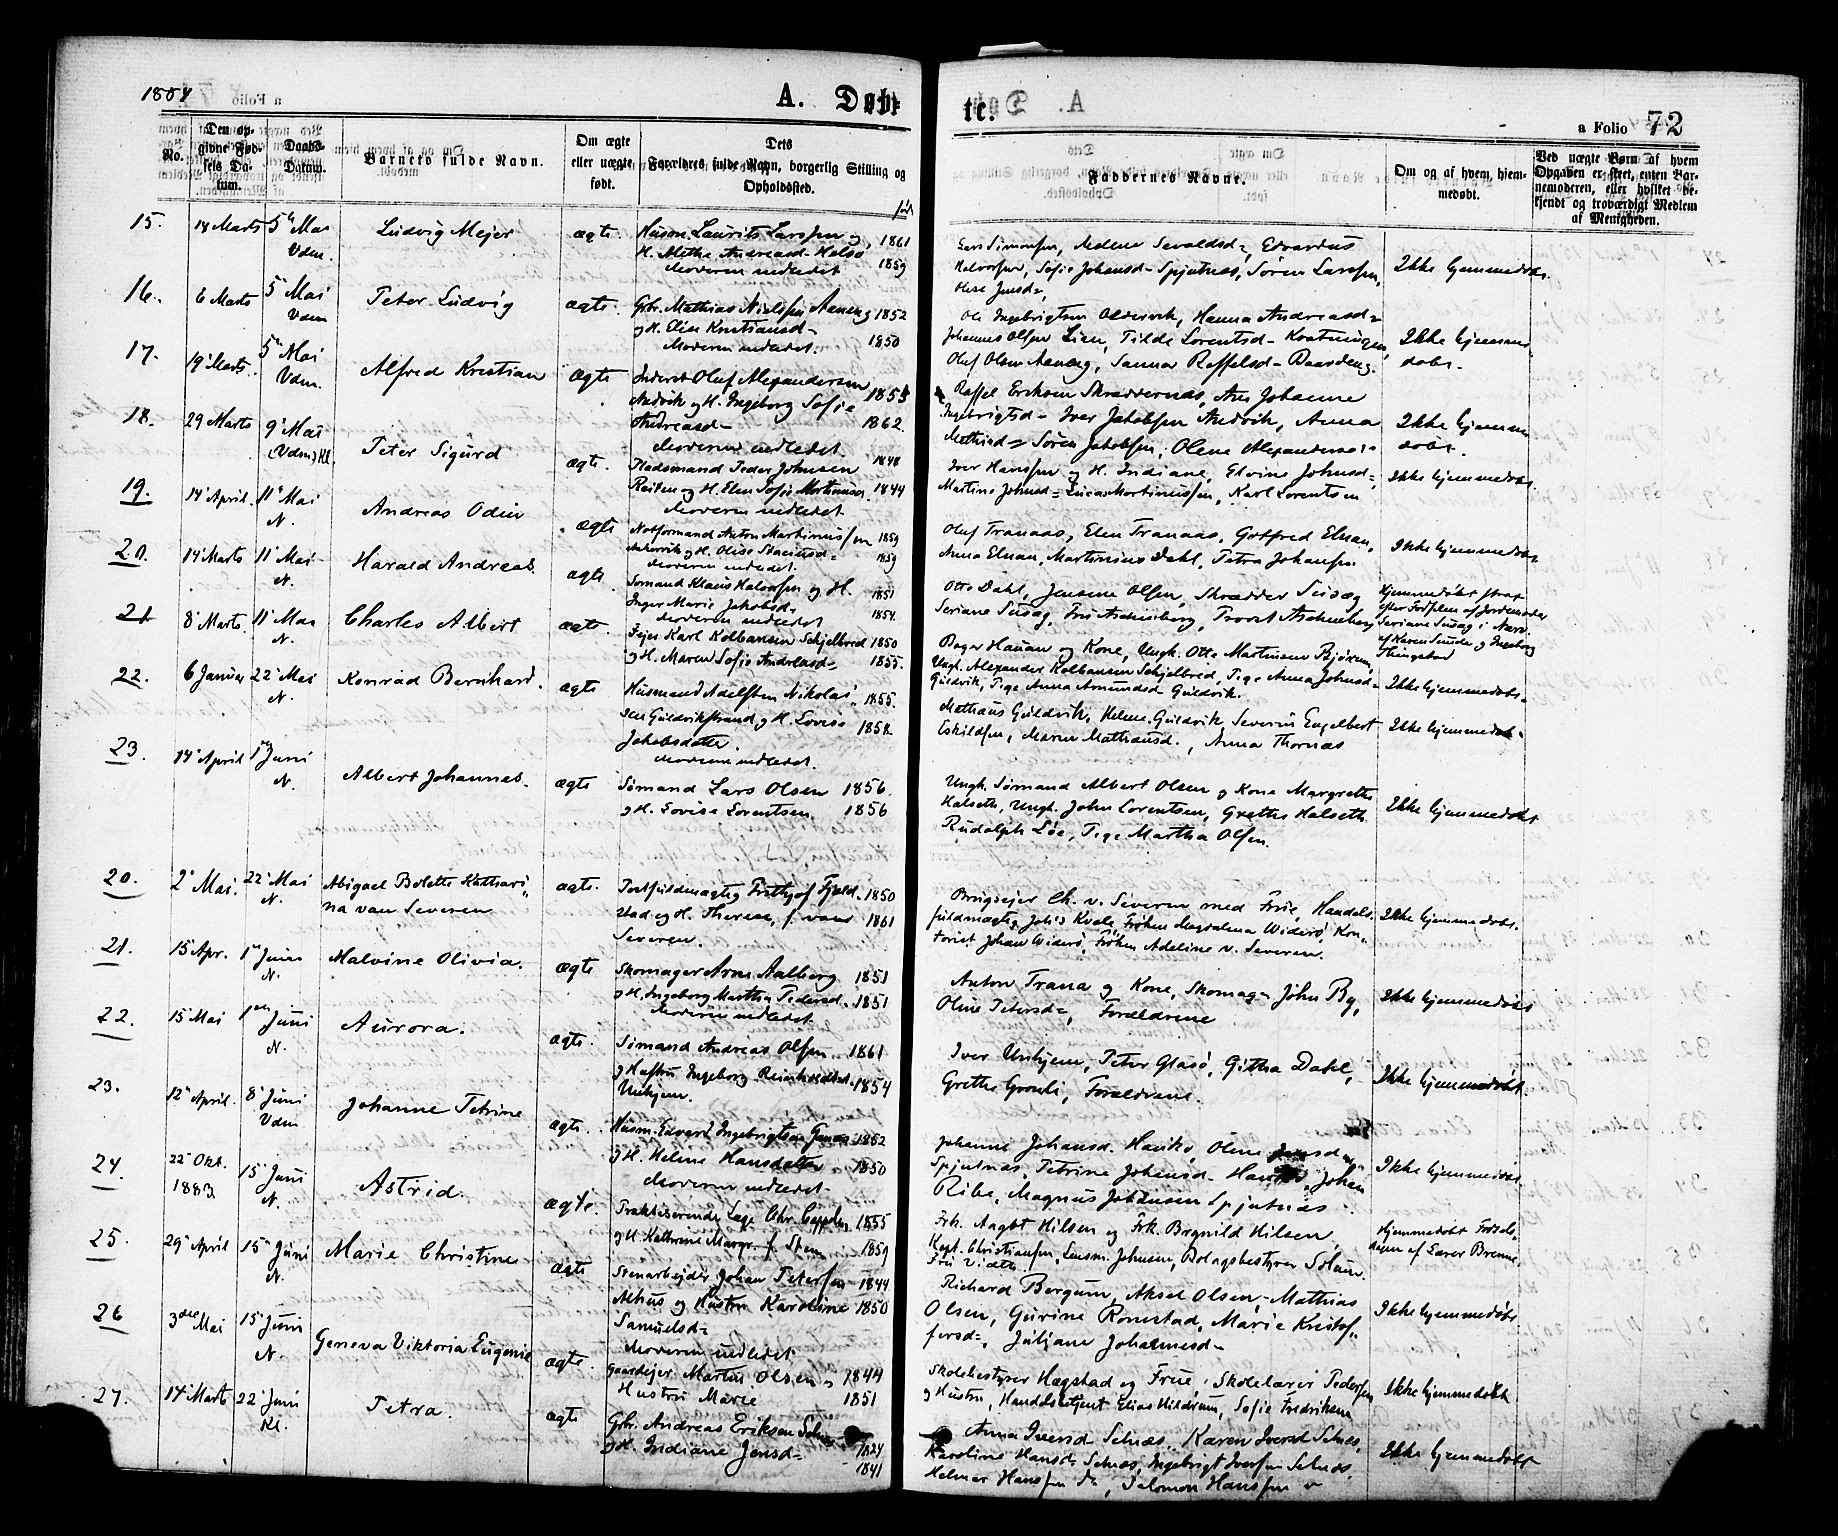 1884
A. Døbte.
a Folio 72
No.
Den opgivne Fødsels Datum.
Daabs-Datum.
Barnets fulde Navn.
Om ægte eller uægte født.
Dets Forældres fulde Navn, borgerlig Stilling og Opholdssted.
Faddernes Navne.
Om og af hvem hjemmedøbt.
Ved uægte Børn af hvem Opgaven er skeet, enten Barnemoderen, eller hvilket bekjendt og troværdigt Medlem af Menigheden.
15. 18 Marts 5te Mai Vdm. Ludvig Mejer ægte. Husm. Laurits Larssen og 1861
H. Methe Andreasd- Helsø 1859
Moderen indledet
Lars Simonsen, Sevaldsd=, Edvardus
Halvorsen, Sofie Johansd- Spjutnæs, Søren Larssen,
Jensd=,
Ikke hjemmedøbt.
16. 6 Marts 5 Mai Vdm Peter Ludvig ægte. Gbr. Mathias Nielssen Aaneng 1852
og H. Elen Kristiansd- 1850
Moderen indledet.
Ole Ingebrigtsen Oldervik, Hanna Andreasd=
Johannes Olsen Lien, Tilde Lorentsd-
Oluf Olsen Aaneng, Sanna Roffelsd-
Ikke hjemme-
døbt.
17. 19 Marts. 5te Mai Vdm. Alfred Kristian ægte Inderst Oluf Alexandersen 1855
Andvik og H. Ingeborg Sofie 1862.
Andreasd-
Moderen indledet.
Roffel Eriksen Skreddernæs, Ane Johanne
Ingebrigtsd- Iver Jakobsen Andvik, Anna
Mathisd= Søren Jakobsen, Olene Alexandersd:
Ikke hjemme
døbt.
18. 29 Marts 9 Mai (Vdm) Kl. Peter Sigurd ægte. Pladsmand Peder Johnsen 1848
Reiten og H. Elen Sofie Mortinusd 1844
Moderen indledet
Iver Hanssen og H. Indiane, Elvine Johnsd=,
Martine Johnsd= Lucas Mortinussen, Karl Lorentsen
Ikke hjemmedøbt.
19. 14 April. 11te Mai N. Andreas Odin ægte Notformand Anton Martinussen 1859
og H. Olise 1859
Moderen indledet.
Oluf Tranaas, Elen Tranaas, Gotfred Elnan,
Anna Elnan, Martinius Dahl, Petra Johansen
Ikke hjemmedøbt.
20. 14 Marts 11 Mai N. Harald Andreas. ægte. Sømand Klaus Halvorsen og H. 1851
Inger Marie Jakobsd. 1854.
Moderen indledet
Otto Dahl, Jensine Olsen, Skrædder
Seriane Fru Aschenberg, Provst Aschenberg
Hjemmedøbt strax
efter Fødselen af Jordemoder
Seriane i Nærv.
af Karen og Ingeborg
21 8 Marts. 11 Mai N. Charles Albert ægte. Karl Kolbansen Schjelbred 1850
og H. Maren Sofie Andreasd- 1855.
Bager Hauan og Kone, Ungk. Otto Martinsen Bjøren,
Ungk. Alexander Kolbansen Schjelbred, Pige Anna Johnsd=
Guldvik, Pige Anna Amundsd Guldvik.
Ikke hjemmedøbt.
22. 6 Januar 22 Mai N. Konrad Bernhard. ægte Husmand Adelsten Nikolai- 1855.
sen Guldvikstrand og H. Lovise 1858
Jakobsdatter.
Moderen indledet.
Mathæus Guldvik, Helene Guldvik Severin Engelbert
Eskildsen, Maren Mathæusd., Anna Thornæs
Ikke hjemmedøbt.
23. 14 April 1te Juni N. Albert Johannes. ægte Sømand Lars Olsen 1856.
og H. Lovise Lorentsen. 1856
Ungk. Sømand Albert Olsen og Kone Margrethe
Halseth, Ungk. John Lorentsen, Grethe Halseth
Rudolph Løe, Pige Martha Olsen.
Ikke hjemmedøbt
20. 2 Mai. 22 Mai N. Abigael Bolette Kathari-
na van Severen ægte. Postfuldmægtig Frithjof Fjeld- 1850
stad og H. Therese, f. van 1861
Severen.
Brugsejer Ch. v. Severen med Frue, Handels-
fuldmægtig Johs Kvale, Frøken Magdalena Widerø, Kon-
torist Johan Widerø, Frøken Adeline v. Severen.
Ikke hjemmedøbt.
21. 15 Apr. 1te Juni N. Malvine Olivia. ægte Skomager Arne Aalberg 1851
og H. Ingeborg Martha Pedersd. 1851
Moderen indledet
Anton Trana og Kone, Skomag= John By,
Oline Petersd=, Forældrene
Ikke hjemmedøbt
22 15 Mai 1te Juni N. Aurora. ægte. Sømand Andreas Olsen 1861
og Hustru Ingeborg 1854
Unhjem.
Iver Unhjem, Peter Glasø, Githa Dahl,
Grethe Forældrene.
Ikke hjemmedøbt.
23. 12 April. 8 Juni Vdm Johanne Petrine ægte. Husm. Edvart Ingebrigtsen 1852
og H. Helene Hansdatter 1850
Moderen indledet.
Johanne Johansd. Olene Jensd=,
Spjutnæs, Petrine Johansd- Johan
Ribe, Magnus Johansen Spjutnæs
Ikke hjemmedøbt.
24. 22 Okt. 1883 15 Juni N. Astrid. ægte. Praktiserende Læge Chr. Cappelen 1855
og H. Kathrine Margr. f. 1859
Frk. Aagot Hilsen og Frk. Brynild Hilsen
Kapt. Christiansen, Lensm. Johnsen, Bolagsbestyrer Solum
Hjemmedøbt Fødsels-
dagen af
25. 29 April 15 Juni N. Marie Christine ægte Stenarbejder Johan Petersen 1844
og Hustru Karoline 1850
Samuelsd=
Moderen indledet
Richard Bergum, Aksel Olsen, Mathias
Olsen, Gurine Romstad, Marie Kristof-
fersd=, Juliane Johannesd-
Ikke hjemmedøbt
26 3die Mai 15 Juni N. Geneva Viktoria Eugenie ægte. Gaardejer Martin Olsen og 1844
Hustru Marie 1851
Skolebestyrer Hagstad og Frue, Skolelærer Pedersen
og Hustru, Handelsbetjent Elias Hildrum, Sofie Fredriksen
Ikke hjemmedøbt
27. 14 Marts 22 Juni Kl. Petra. ægte Gbr. Andreas Eriksen Selnæs 1824
og H. Indiane Jensd= 1841
Anna Iversd Selnæs, Karen Iversd Selnæs,
Karoline Hansd: Selnæs, Ingebrigt Iversen Selnæs
Helmer Hanssen do, Salomon Hanssen
Ikke hjemmedøbt